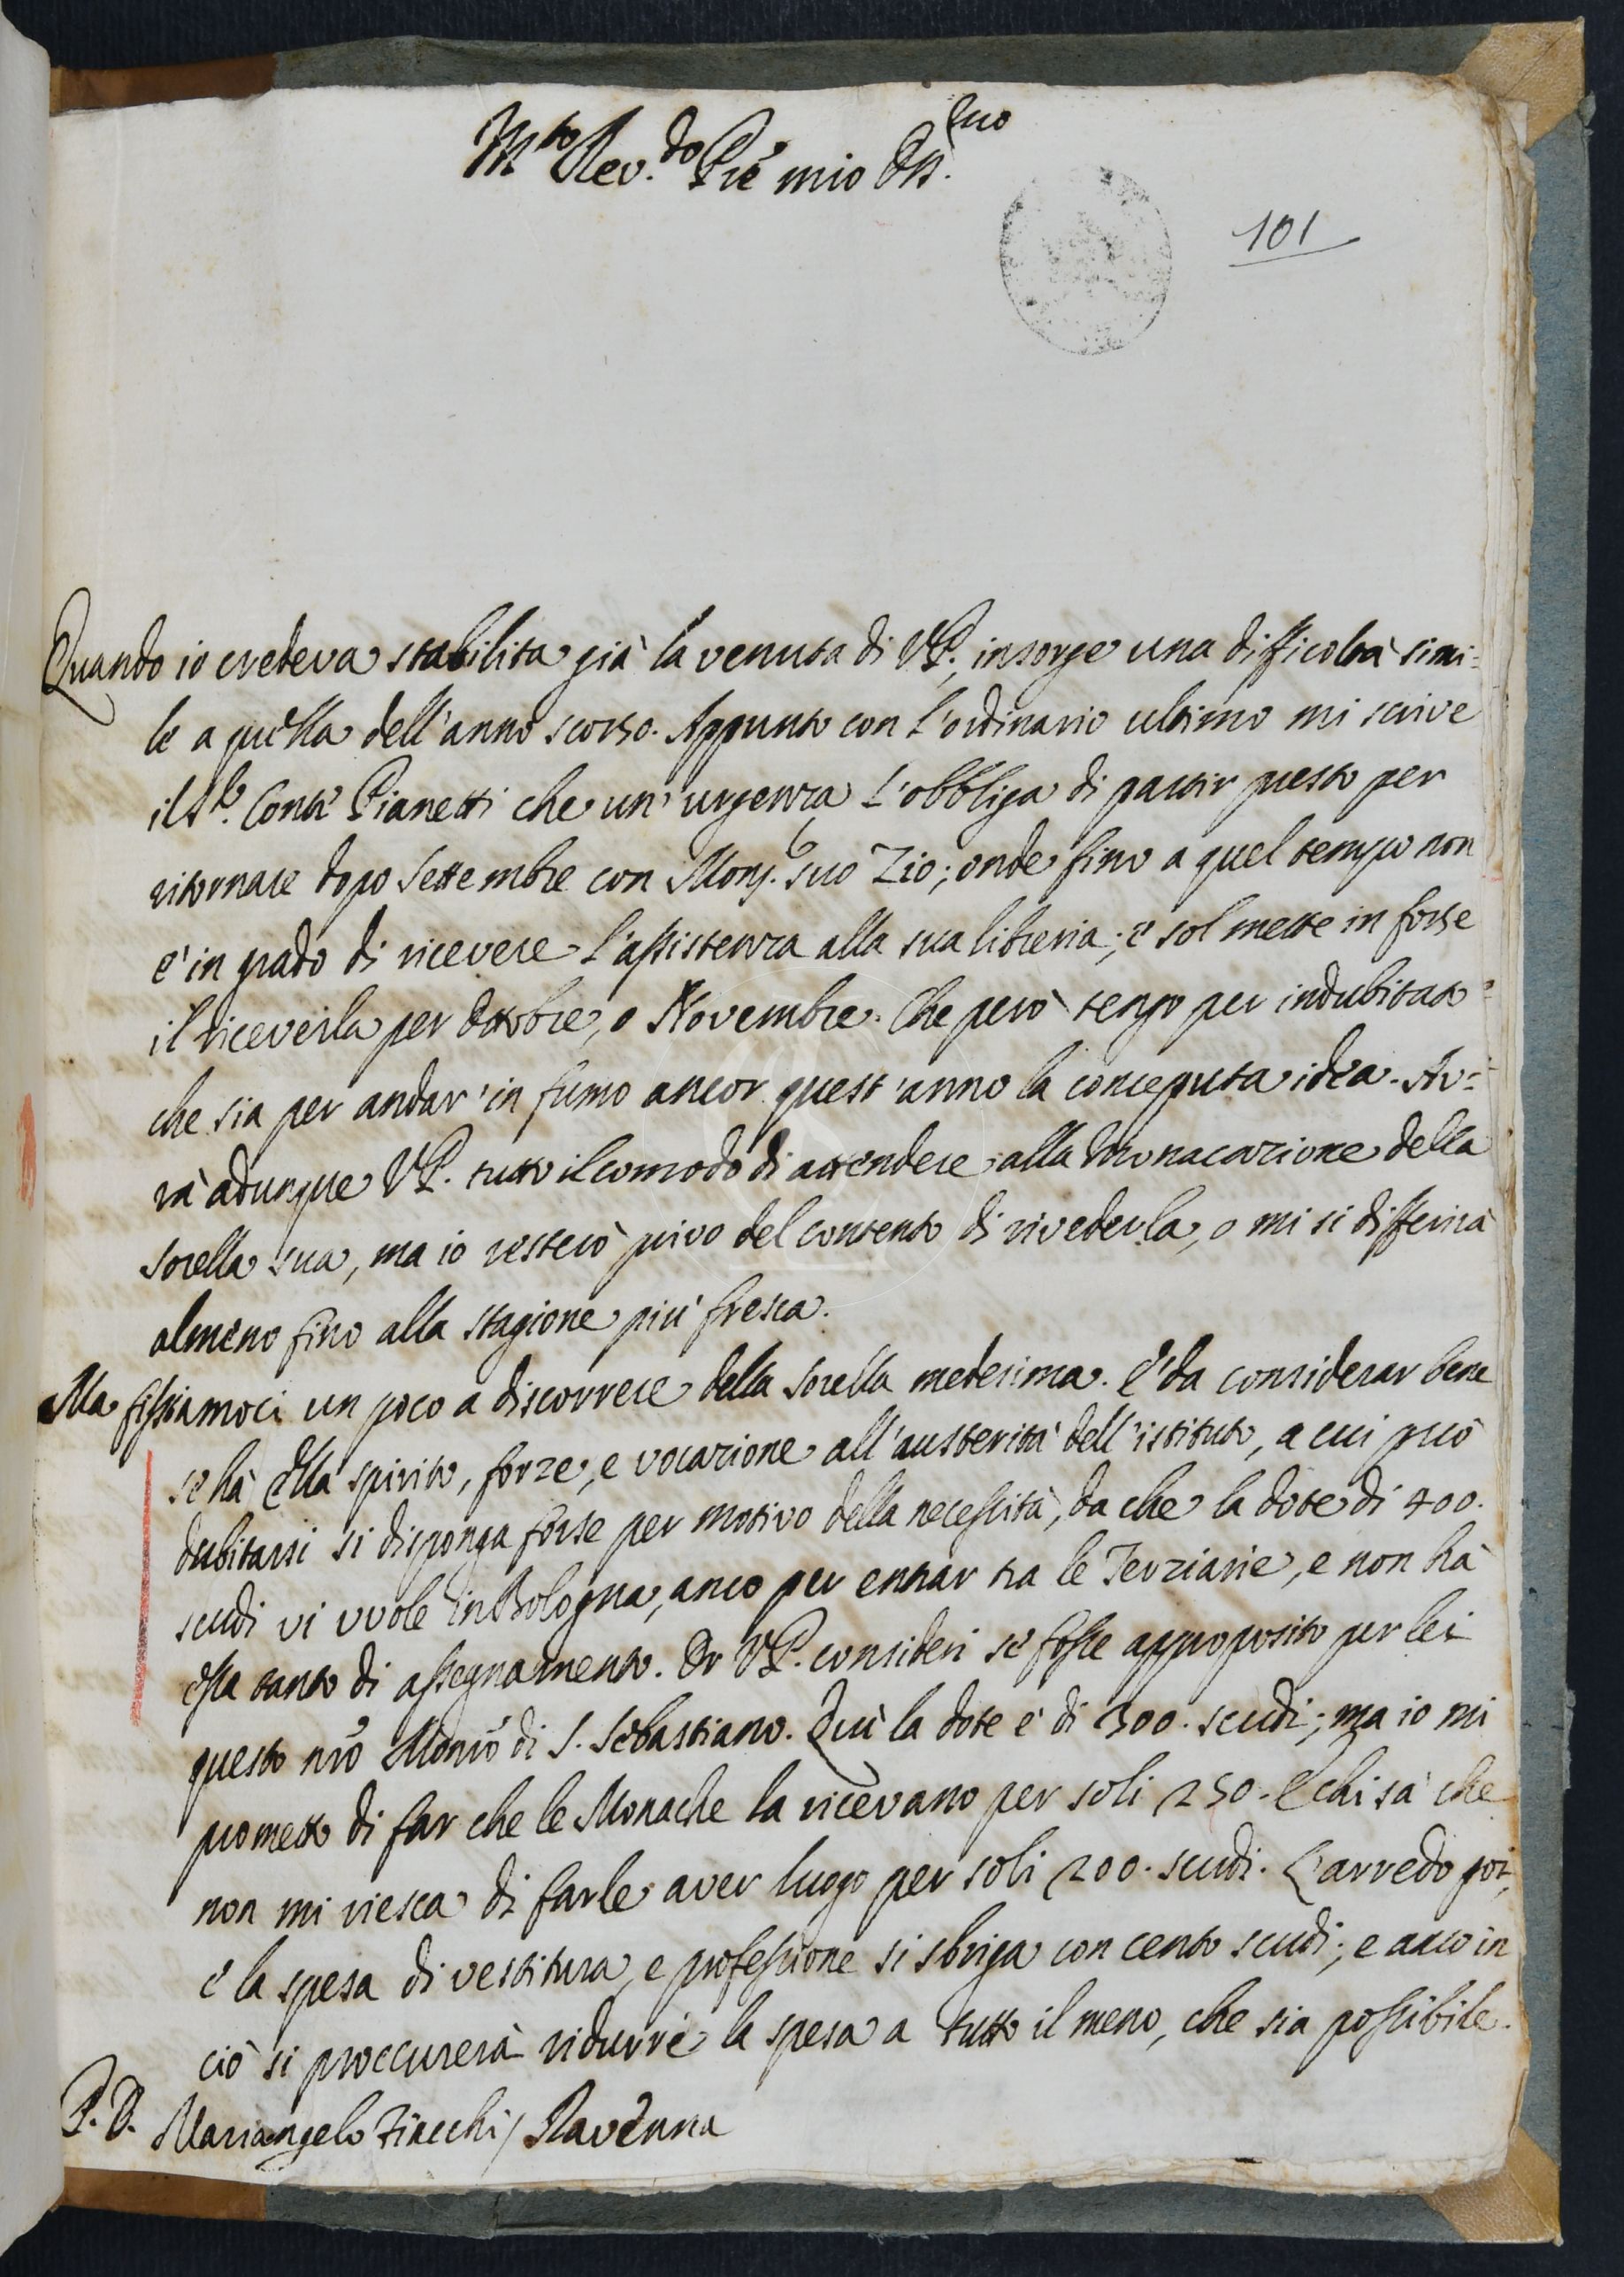 M.to Rev.do Prē mio Oss.mo
101
Quando io credeva stabilita già la venuta di V.P., insorge una difficoltà simi=
le a quella dell'anno scorso. Appunto con l'ordinario ultimo mi scrive
il S.r Conte Pianetti che un'urgenza l'obbliga di partir presto per
ritornare dopo Settembre con Mons.r suo Zio; onde fino a quel tempo non
e' in grado di ricevere l'assistenza alla sua libreria; e sol mette in forse
il riceverla per Ottobre, o Novembre. Che però tengo per indubitato
che sia per andar' in fumo ancor quest'anno la conceputa idea. Av=
rà adunque V.P. tutto il comodo di attendere alla Monacazione della
Sorella sua, ma io resterò privo del contento di rivederla, o mi si differirà
almeno fino alla stagione più fresca.
Ma fissiamoci un poco a discorrere della Sorella medesima. E' da considerar bene
se hà Ella spirito, forze, e vocazione all'austerità dell'istituto, a cui può
dubitarsi si disponga forse per motivo della necessità, da che la dote di 400.
scudi vi vuole in Bologna, anco per entrar tra le Terziarie, e non hà
essa tanto di assegnamento. Or V.P. consideri se fosse approposito per lei
questo nrō Monrō di S. Sebastiano. Quì la dote e' di 300. scudi; ma io mi
prometto di far che le Monache la ricevano per soli 250. E chi sà che
non mi riesca di farle aver luogo per soli 200. scudi. L'arredo poi,
e la spesa di vestitura, e professione si sbriga con cento scudi; e anco in
ciò si proccurerà ridurre la spesa a tutto il meno, che sia possibile.
P. D. Mariangelo Fiacchi / Ravenna